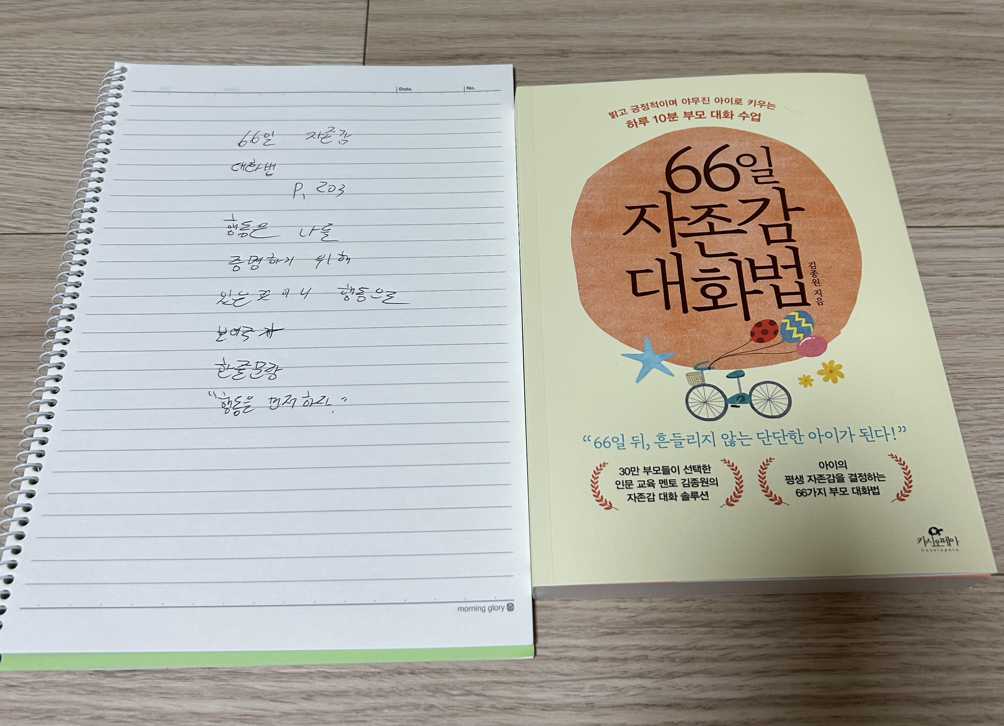 Date.
No.
66일 자존감
대화법
P. 203
행동은 나를
증명하기 위해
있는 것이니 행동으로
보여주자
한줄문장
"행동을 먼저 하라."
morning glory
밝고 긍정적이며 야무진 아이로 키우는
하루 10분 부모 대화 수업
66일
자존감
대화법
김종원 지음
"66일 뒤, 흔들리지 않는 단단한 아이가 된다!"
30만 부모들이 선택한
인문 교육 멘토 김종원의
자존감 대화 솔루션
아이의
평생 자존감을 결정하는
66가지 부모 대화법
카시오페아
Cassiopeia